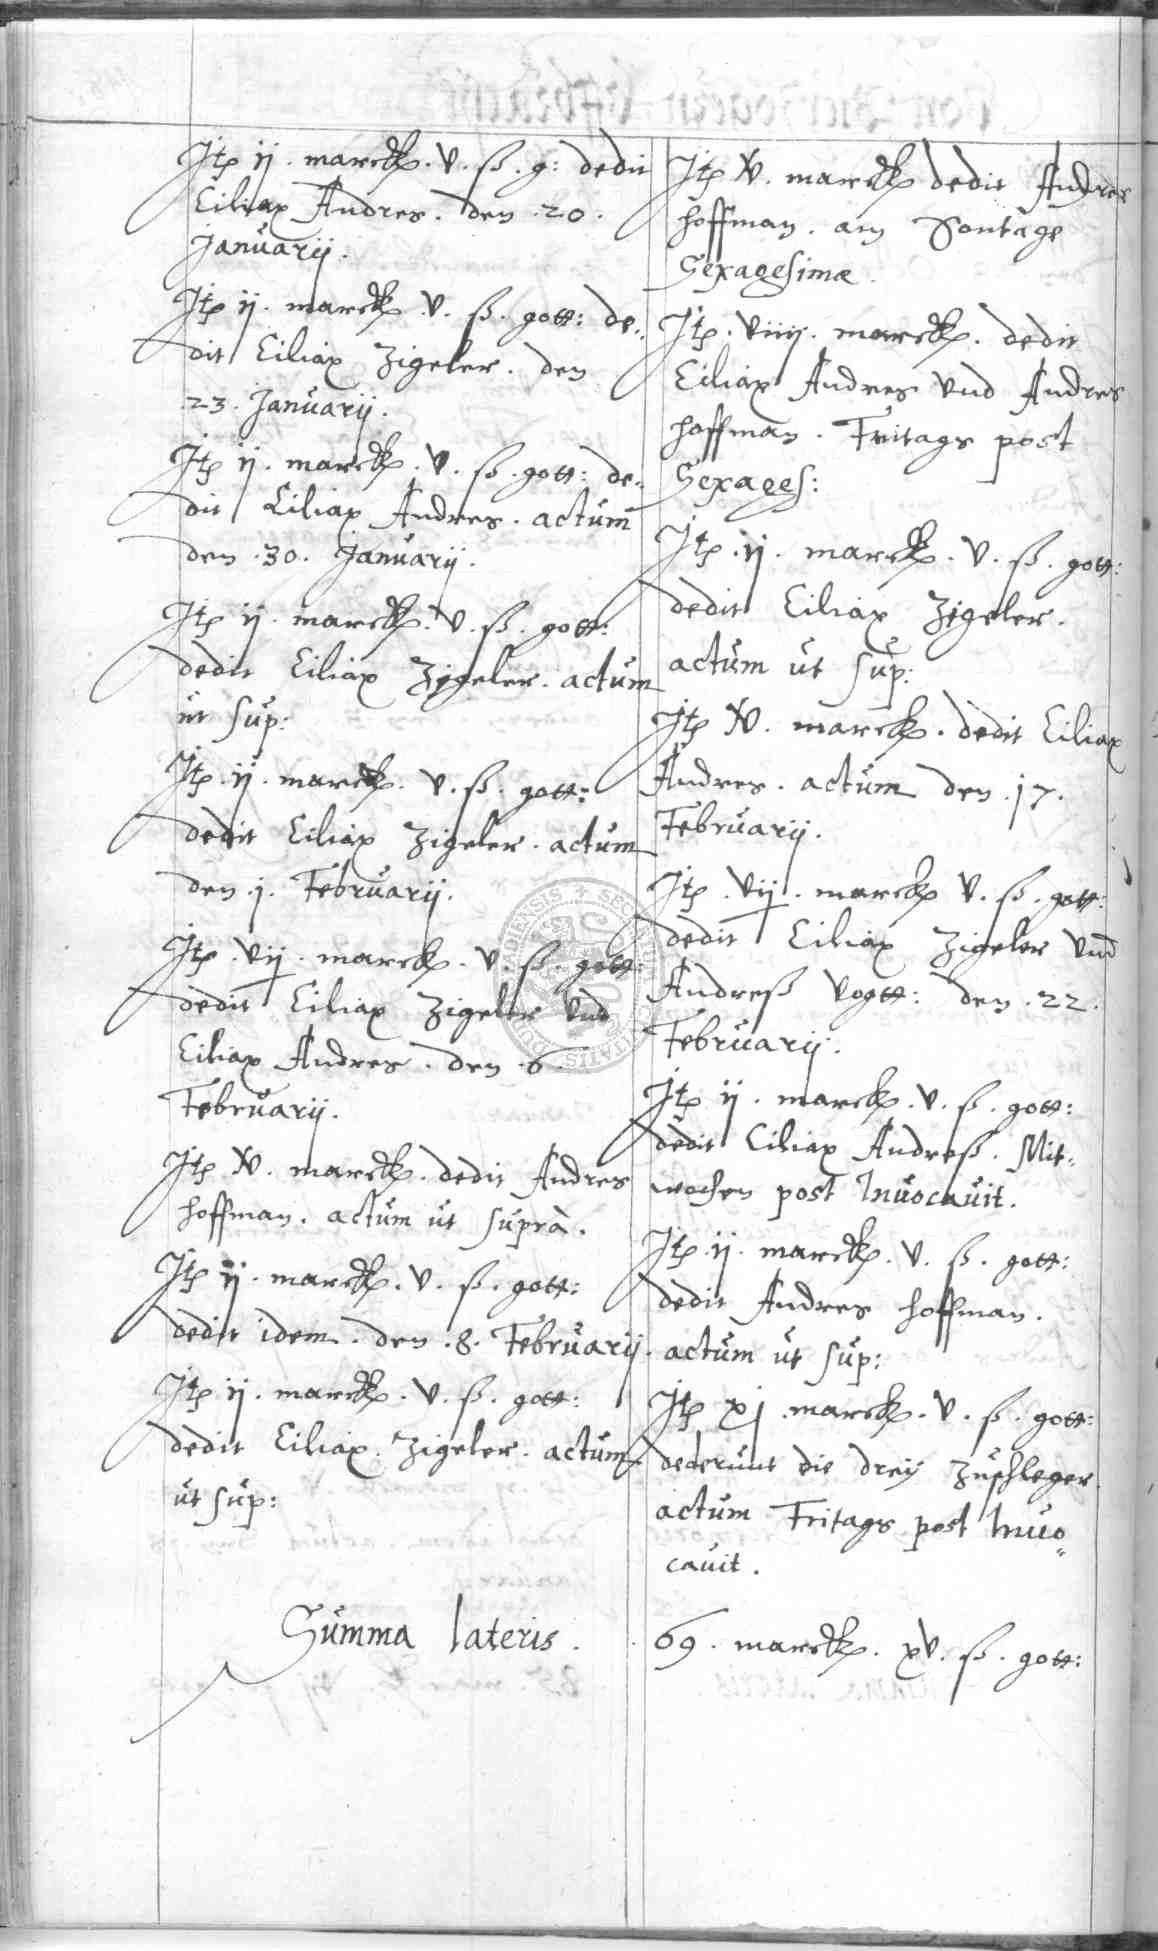 Jtem ij . marck . v . ß . g : dedit
Ciliax Andres . den . 20 .
Januarij .
Jtem ij . marck . v . ß . gott : de„
dit Ciliax Zigeler . den
23 . Januarij .
Jtem ij . marck . v . ß . gott : de„
dit Ciliax Andres . actum
den . 30 . Januarij .
Jtem ij . marck . v . ß . gott :
dedit Ciliax Zigeler . actum
ut sup :
Jtem ij . marck . v . ß . gott :
dedit Ciliax Zigeler . actum
den . j . Februarij .
Jtem . vij . marck . v . ß . gott :
dedit Ciliax Zigeler vnd
Ciliax Andres . den . 6 .
Februarij .
Jtem . marck . dedit Andres
hoffman . actum ut supra .
Jtem ij . marck . v . ß . gott :
dedit idem . den . 8 . Februarij .
Jtem ij . marck . v . ß . gott :
dedit Ciliax Zigeler . actum
ut sup :
Jtem . marck dedit Andres
hoffman . am Sontage
Sexagesimæ .
Jtem . viiij . marck . dedit
Ciliax Andres vnd Andres
hoffman . Fritags post
Sexages :
Jtem . ij . marck . v . ß . gott :
dedit Ciliax Zigeler .
actum ut sup :
Jtem . marck . dedit Ciliax
Andres . actum den . 17 .
Februarij .
Jtem . vij . marck v . ß . gott :
dedit Ciliax Zigeler vnd
Andreß Vogtt : den . 22 .
Februarij .
Jtem ij . marck . v . ß . gott :
dedit Ciliax Andreß . Mit„
wochen post Inuocauit .
Jtem ij . marck . v . ß . gott :
dedit Andres hoffman .
actum ut sup :
Jtem xj . marck . v . ß . gott :
dederunt die dreij Zuschleger .
actum Fritags post Inuo„
cauit .
Summa lateris . 69 . marck . xv . ß . gott :